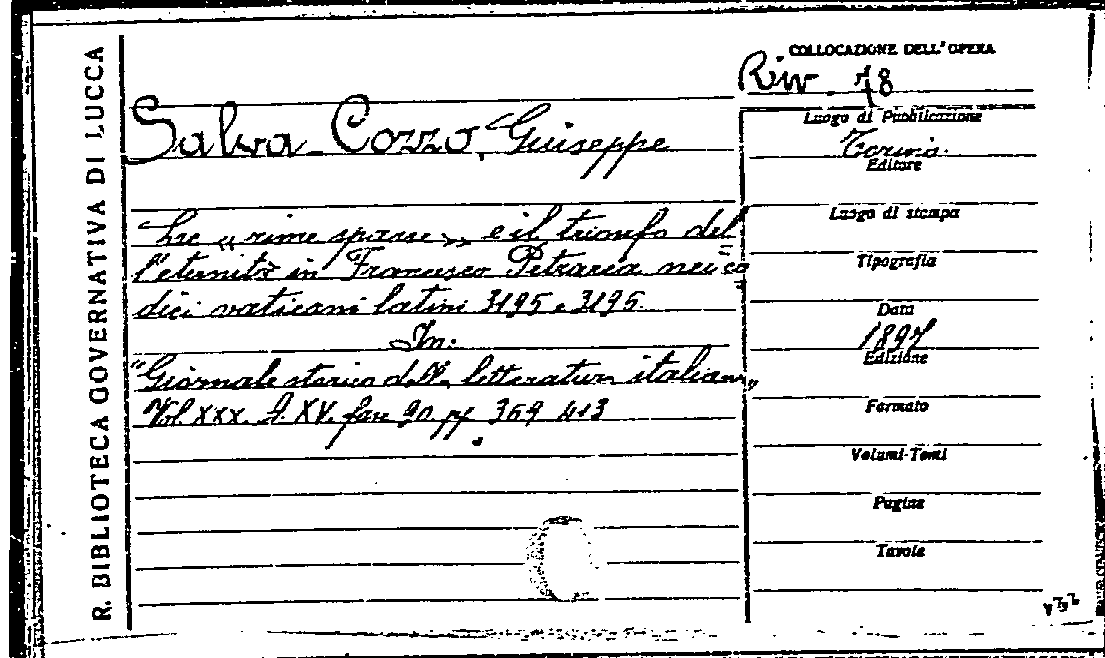 R. BIBLIOTECA GOVERNATIVA DI LUCCA
COLLOCAZIONE DELL' OPERA
Riv. 78
Salva-Cozzo, Giuseppe
Le "rime sparse" e il trionfo del
l'eternità in Francesco Petrarca nei co
dici vaticani latini 3195 e 3195.
In:
"Giornale storico della letteratura italiana"
Vol. XXX. A. XV. fasc 90 pp. 369 413
Luogo di Pubblicazione
Torino.
Editore
Luogo di stampa
Tipografia
Data
1897
Edizione
Formato
Volumi-Tomi
Pagine
Tavole